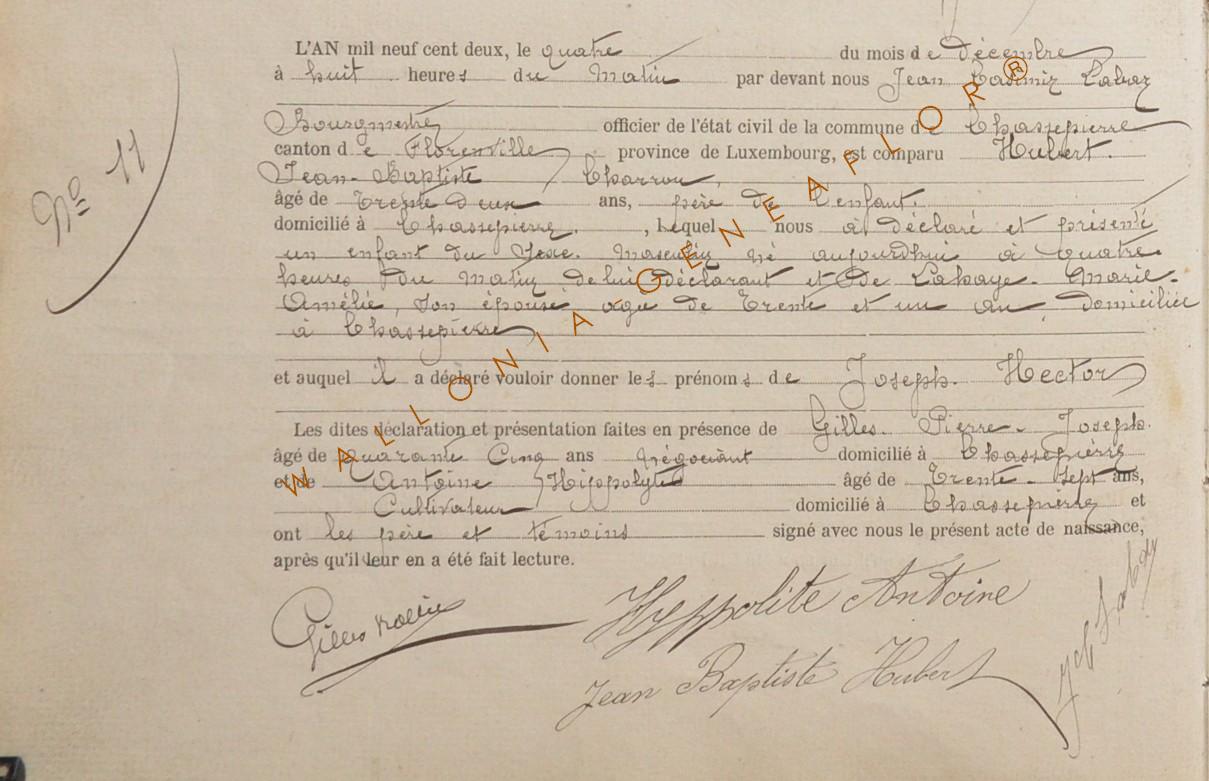 L'AN mil neuf cent deux, le quatre du mois de décembre
à huit heures du Matin par devant nous Jean Casimir
Bourgmestre officier de l'état civil de la commune de Chassepierre
canton de Florenville province de Luxembourg, est comparu Hubert.
Jean-Baptiste Charron,
âgé de Trente Deux ans, père de l'enfant.
domicilié à Chassepierre, lequel nous a déclaré et présenté
un enfant du Sexe. Masculin né aujourdhui à quatre
heures du Matin de lui déclarant et de Lahaye. Marie-
Amélie, son épouse agée de Trente et un an domiciliée
à Chassepierre
Nº 11
et auquel il a déclaré vouloir donner les prénoms de Joseph. Hector
Les dites déclaration et présentation faites en présence de Gilles. Pierre-Joseph.
âgé de quarante Cinq ans négociant domicilié à Chassepierre
et de Antoine Hippolyte âgé de Trente-Sept ans,
Cultivateur domicilié à Chassepierre et
ont les père et témoins signé avec nous le présent acte de naissance,
après qu'il leur en a été fait lecture.
Gilles Hyppolite Antoine
Jean Baptiste Hubert
WALLONIA GENEAFLOR®